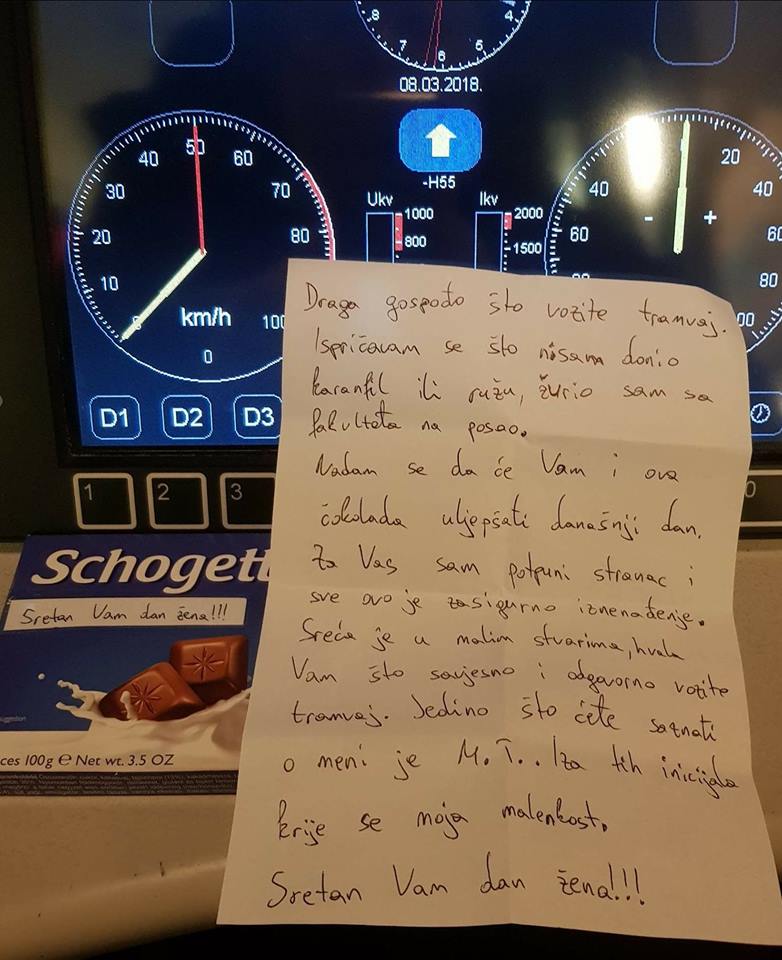 8
7
6
5
4
08.03.2018.
-H55
Ukv
1000
800
Ikv
2000
1500
0
10
20
30
40
50
60
70
80
100
km/h
0
60
40
20
40
60
80
00
-
+
D1
D2
D3
1
2
3
0
Schogett
Sretan Vam dan žena!!!
ces 100g e Net wt. 3.5 OZ
Draga gospođo što vozite tramvaj.
Ispričavam se što nisam donio
karanfil ili ružu, žurio sam sa
fakulteta na posao.
Nadam se da će Vam i ova
čokolada uljepšati današnji dan.
Za Vas sam potpuni stranac i
sve ovo je zasigurno iznenađenje.
Sreća je u malim stvarima, hvala
Vam što savjesno i odgovorno vozite
tramvaj. Jedino što ćete saznati
o meni je M. T.. Iza tih inicijala
krije se moja malenkost.
Sretan Vam dan žena!!!